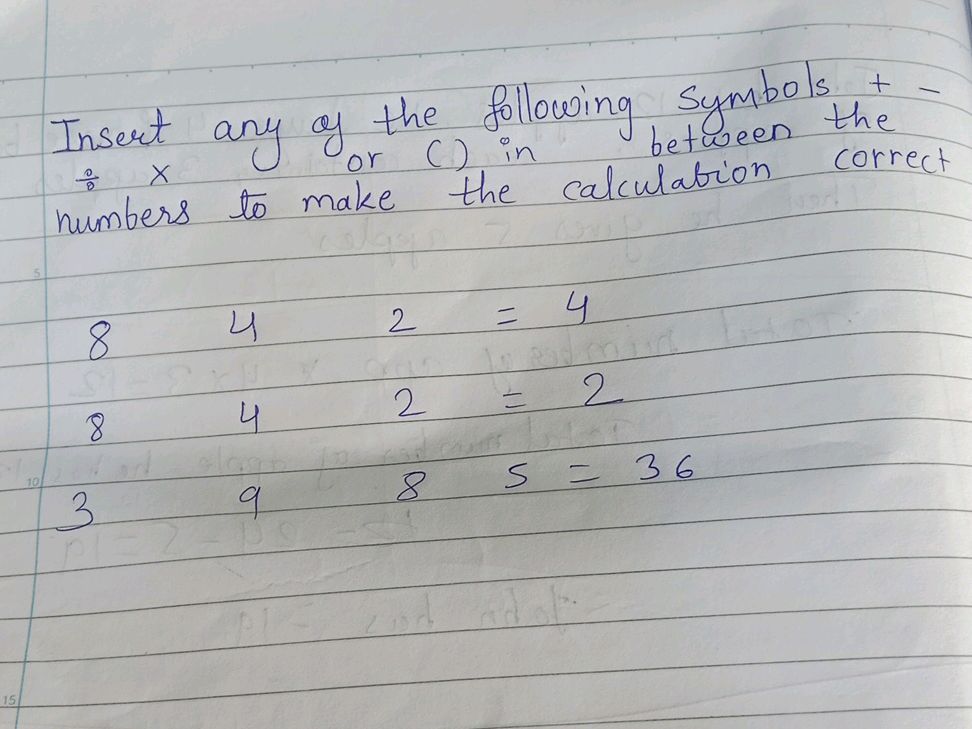 Insert any of the following symbols + -
÷ × or () in between the
numbers to make the calculation correct
8 4 2 = 4
8 4 2 = 2
3 9 8 5 = 36
5
10
15